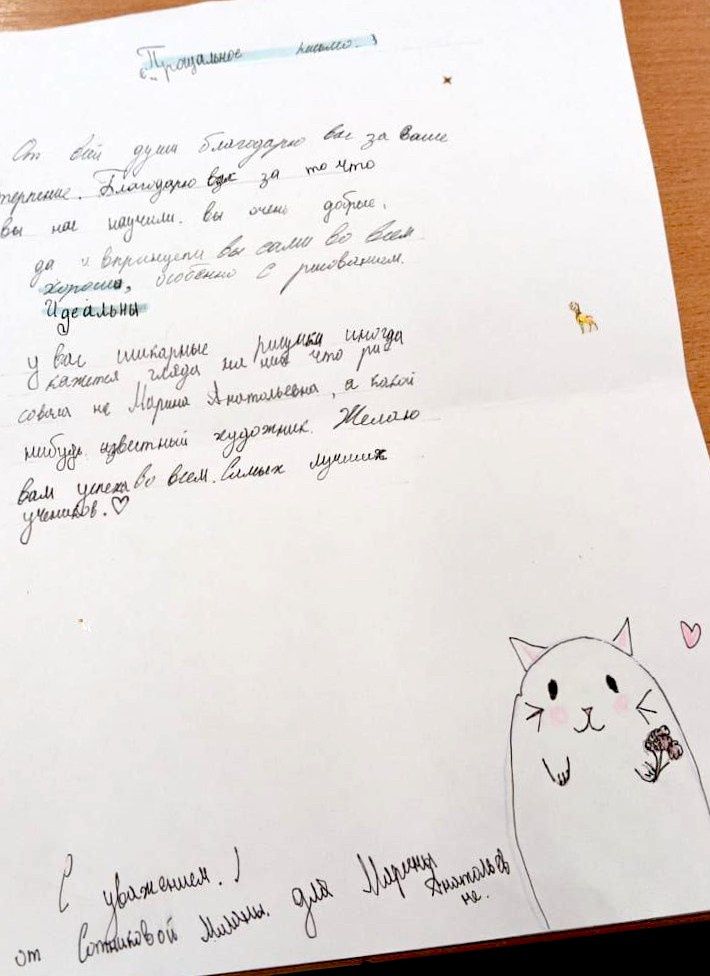 "Прощальное письмо."
От всй души благодарю вас за Ваше
терпение. Благодарю вас за то что
вы нас научили. вы очень добрые,
да и впринцепи вы сами во всем
хороши, особенно с рисованием.
Идеальны
у вас шикарные рисунки иногда
кажется глядя на них что ри
совала не Марина Анатольевна, а какой
нибудь известный художник. Желаю
вам успеха во всем. Самых лучших
учеников.♡
С уважением!
от Сотниковой Миланы. для Марины
Анатольев
не.